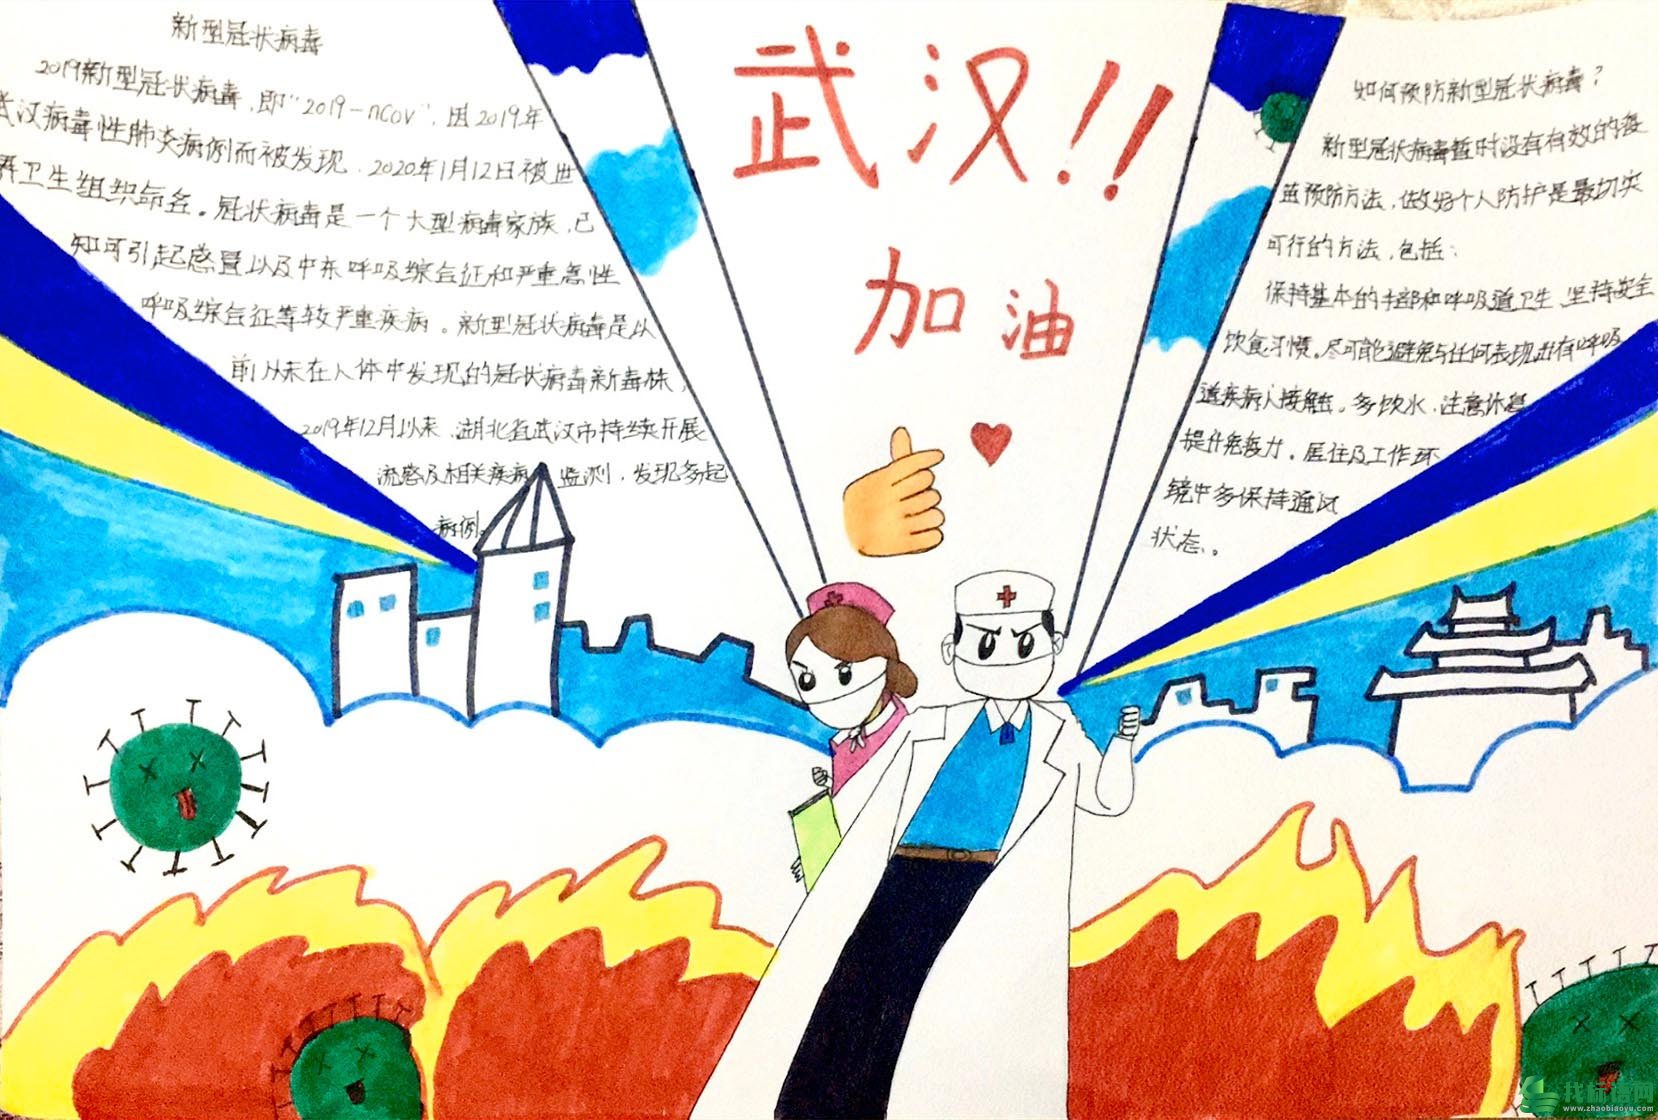 新型冠状病毒
2019新型冠状病毒,即"2019-nCoV",因2019年
武汉病毒性肺炎病例而被发现,2020年1月12日被世
界卫生组织命名。冠状病毒是一个大型病毒家族,已
知可引起感冒以及中东呼吸综合征和严重急性
呼吸综合征等较严重疾病。新型冠状病毒是以
前从未在人体中发现的冠状病毒新毒株,
2019年12月以来,湖北省武汉市持续开展
流感及相关疾病监测,发现多起
病例。
武汉!!
加油
如何预防新型冠状病毒?
新型冠状病毒暂时没有有效的疫
苗预防方法,做好个人防护是最切实
可行的方法,包括:
保持基本的手部和呼吸道卫生,坚持安全
饮食习惯。尽可能避免与任何表现出有呼吸
道疾病人接触。多饮水,注意休息
提升免疫力。居住及工作环
镜中多保持通风
状态。
找标语网
www.zhaobiaoyu.com